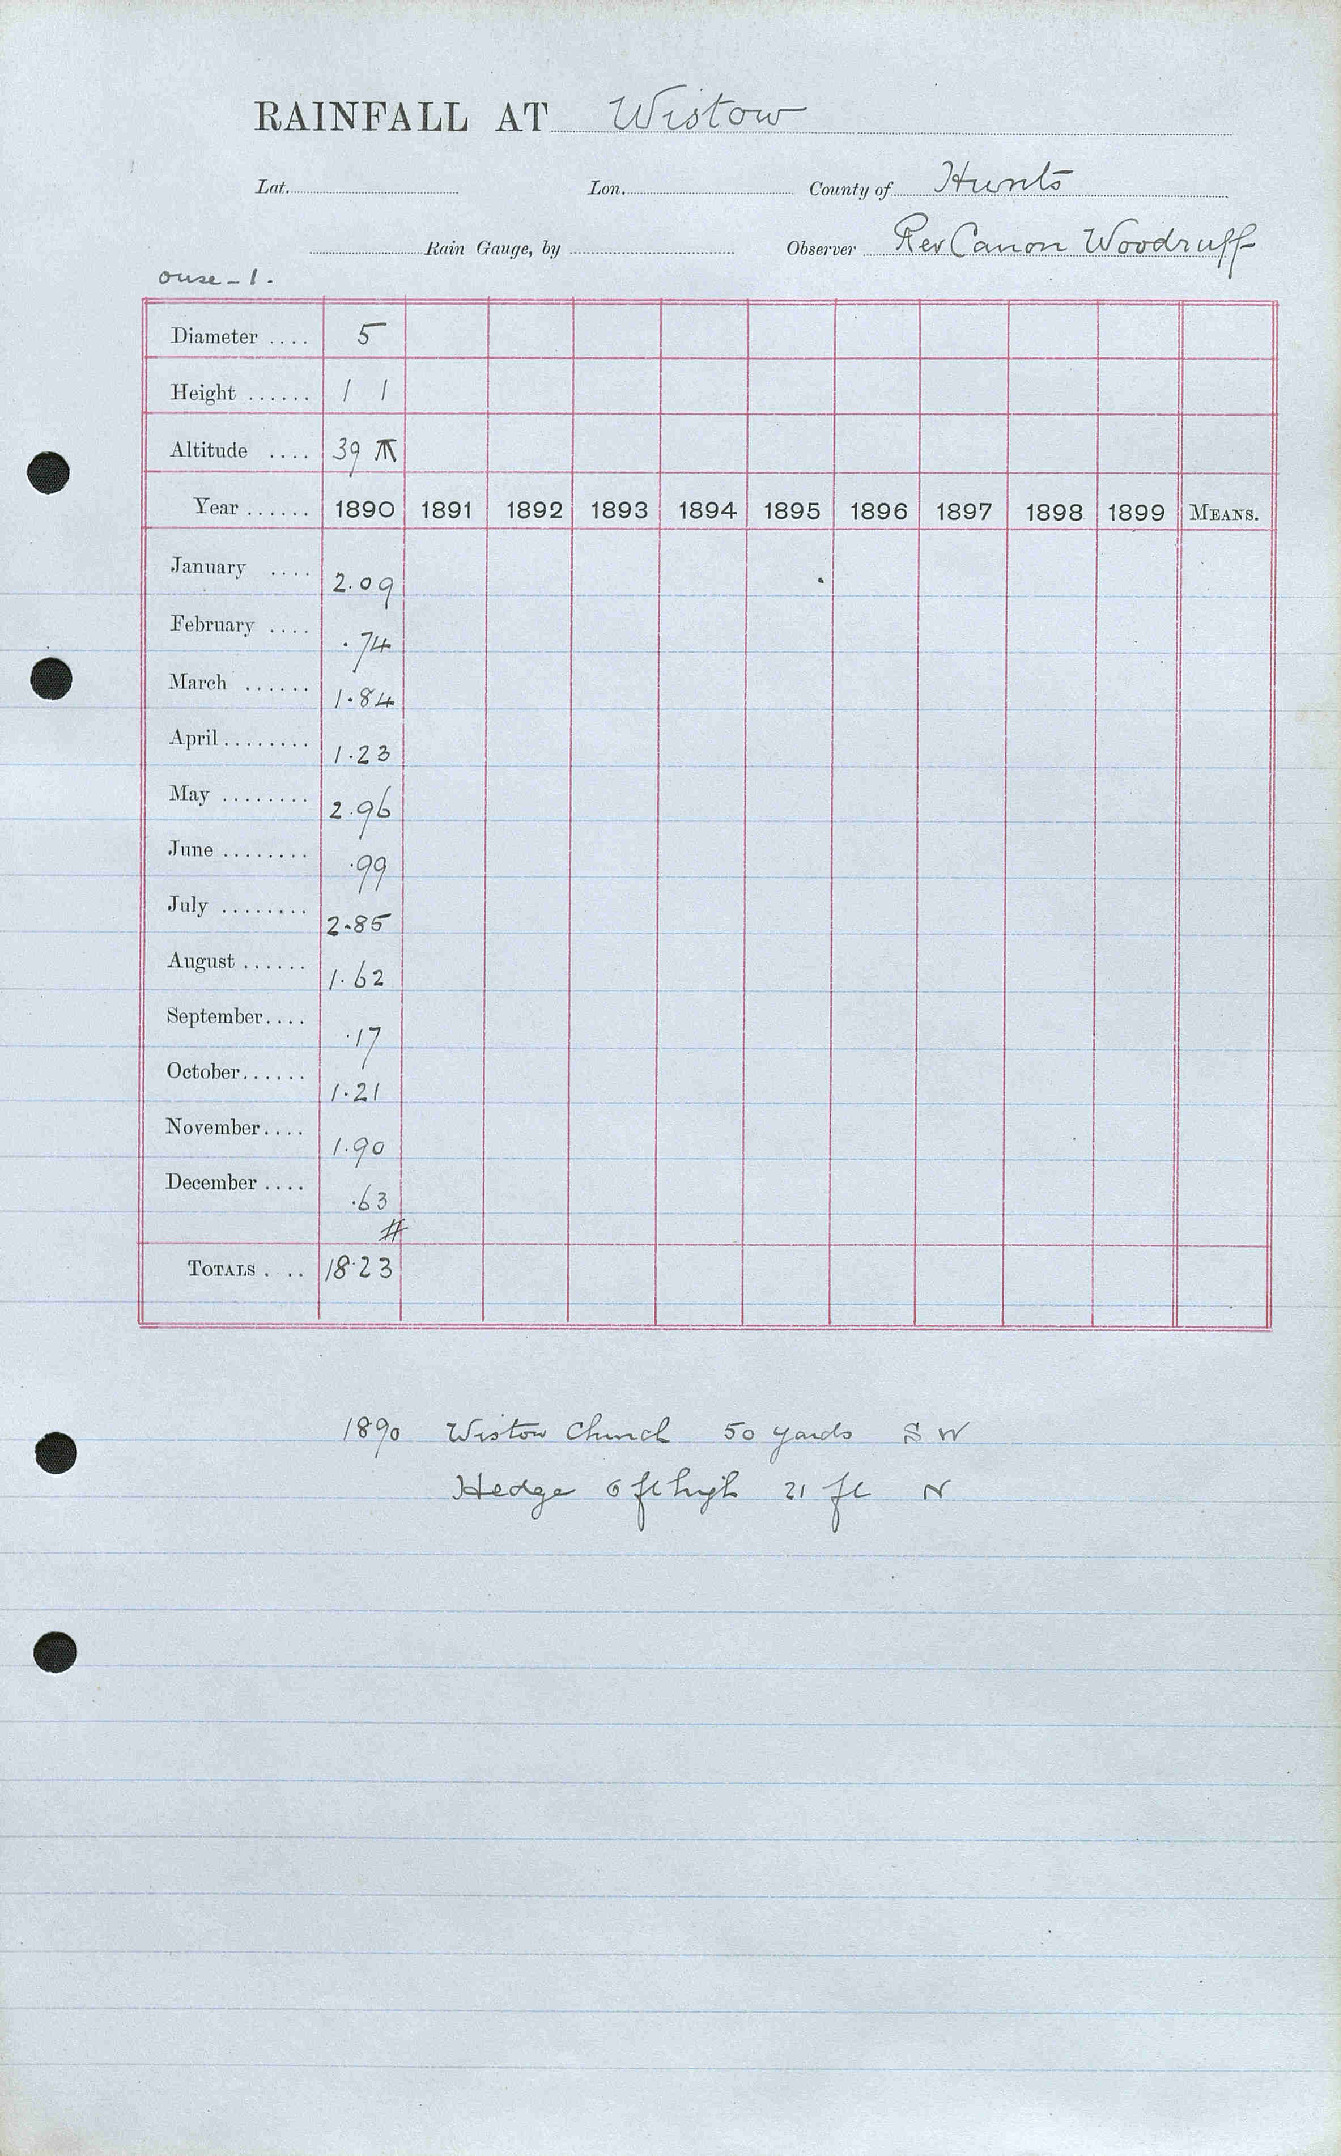 RAINFALL AT Wistow
Lat. Lon. County of Hunts
Rain Gauge, by Observer Rev Canon Woodruff
ouse - 1.
Diameter .... 5
Height ...... 1 1
Altitude .... 39
Year ...... 1890 1891 1892 1893 1894 1895 1896 1897 1898 1899 MEANS.
January .... 2.09
February .... .74
March ...... 1.84
April ........ 1.23
May ........ 2.96
June ........ .99
July ........ 2.85
August ...... 1.62
September.... .17
October...... 1.21
November.... 1.90
December .... .63
#
TOTALS . .. 18.23
1890 Wistow Church 50 yards S W
Hedge 6 ft high 21 ft N